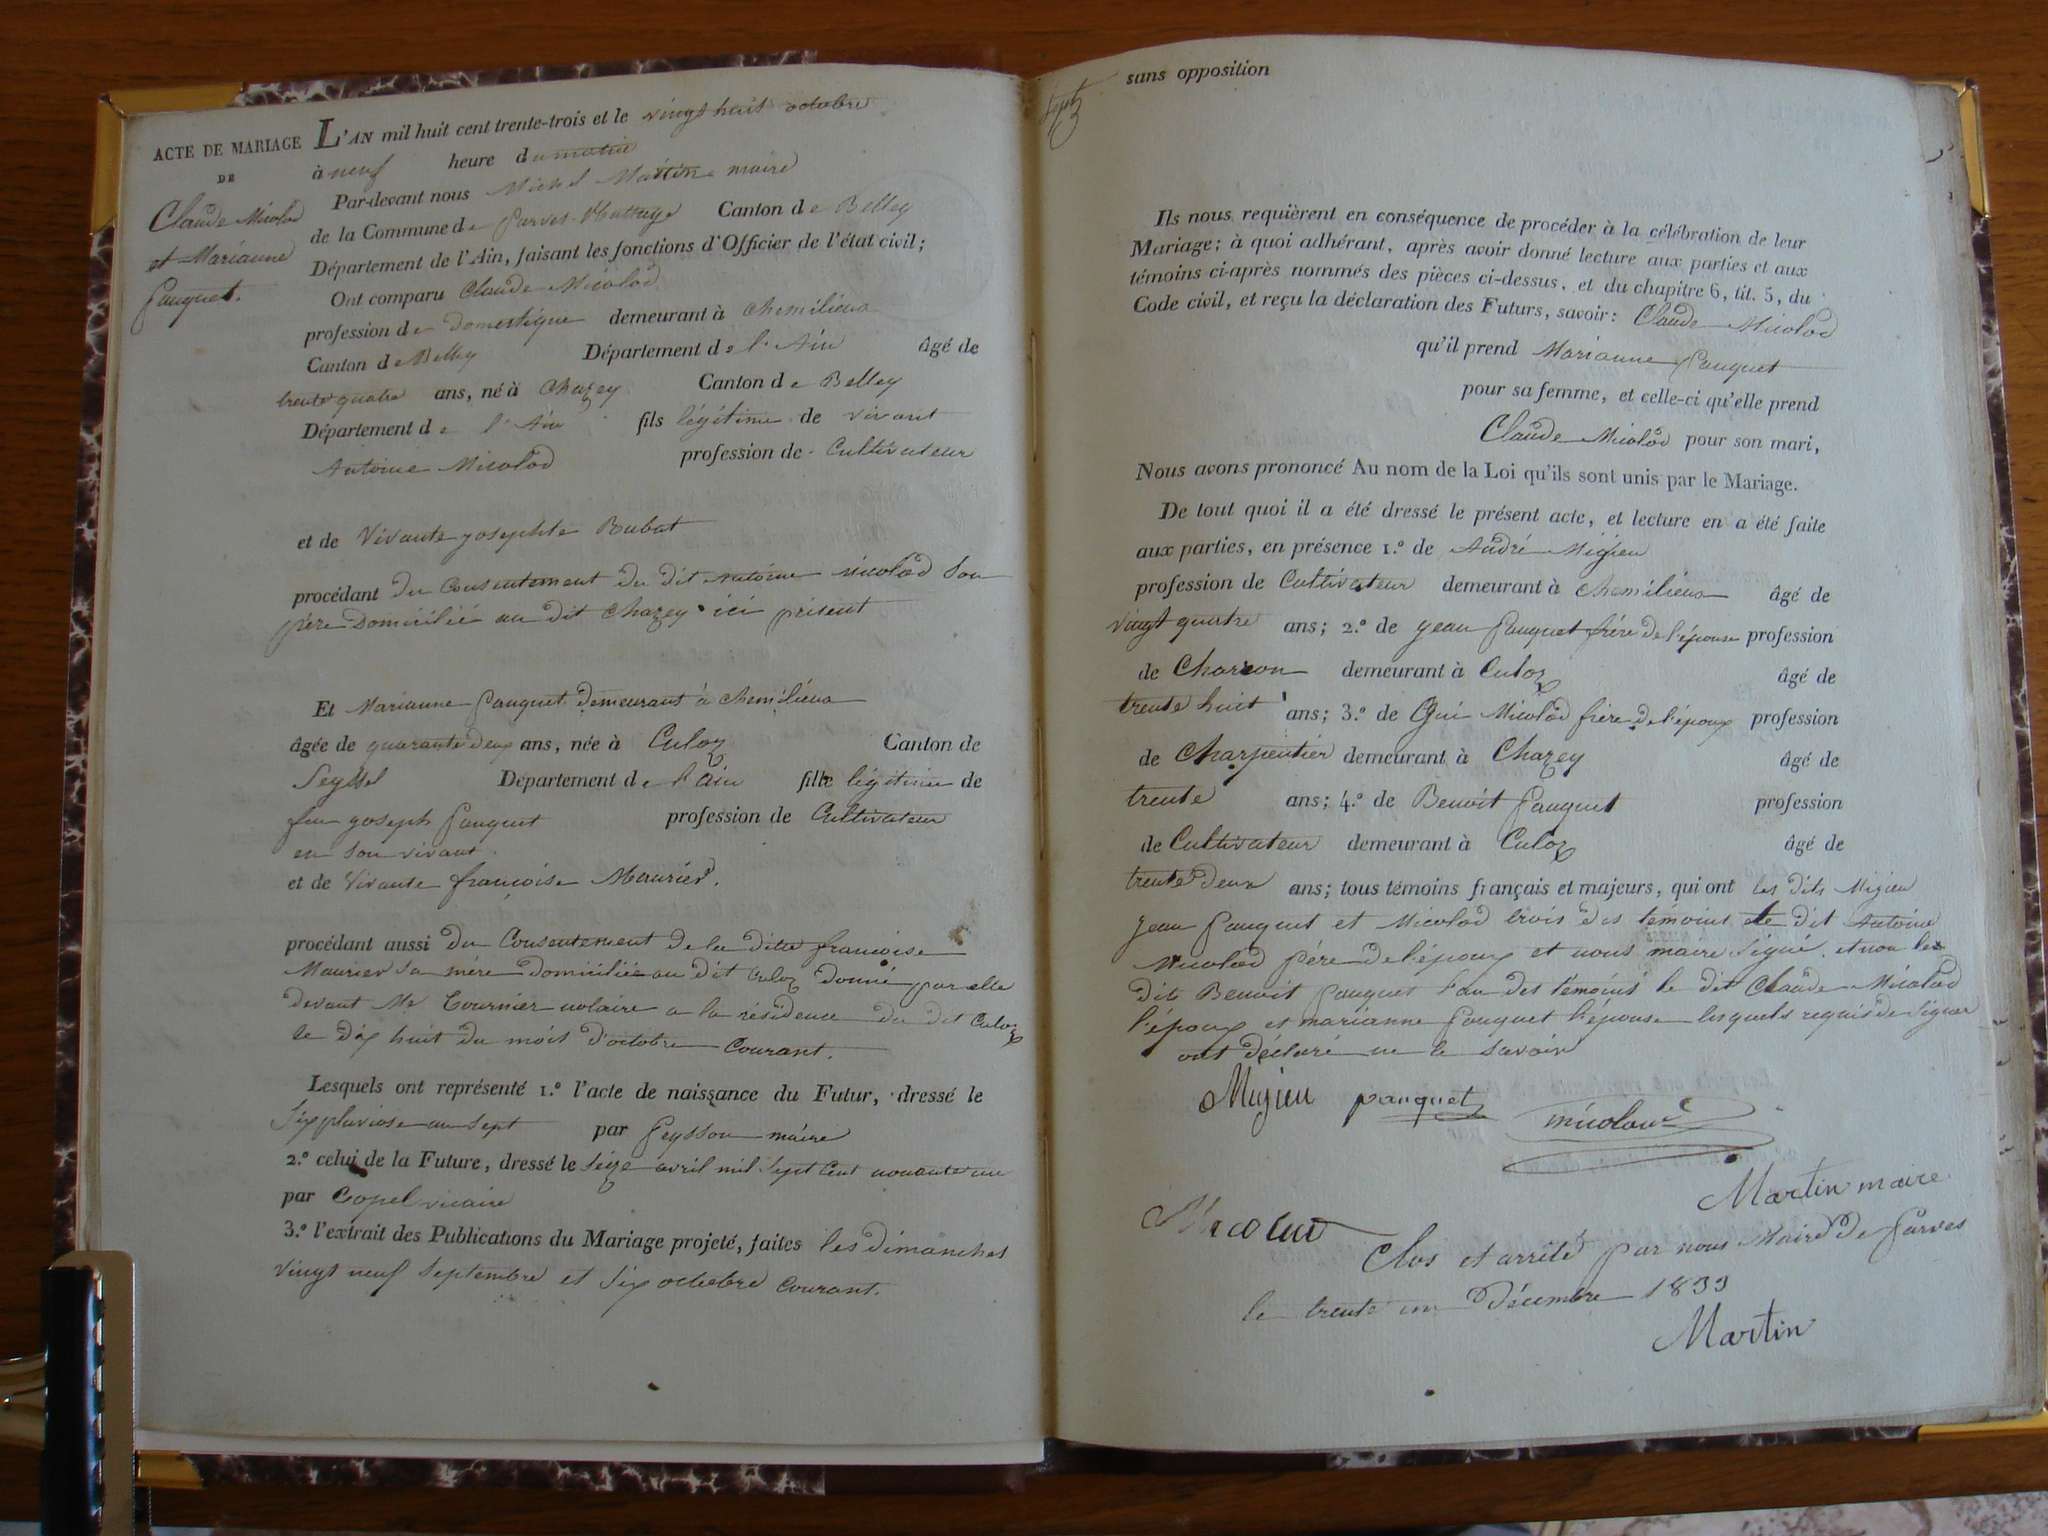 ACTE DE MARIAGE
DE
Claude Micolod
et Marianne
Pauquet.
L'AN mil huit cent trente-trois et le vingt huit octobre
à neuf heure du matin
Par-devant nous Michel Martin maire
de la Commune de Parves Canton de Belley
Département de l'Ain, faisant les fonctions d'Officier de l'état civil;
Ont comparu Claude Micolod
profession de Domestique demeurant à Chemilieux
Canton de Belley Département de l'Ain âgé de
trente quatre ans, né à Chazey Canton de Belley
Département de l'Ain fils légitime de vivant
Antoine Micolod profession de Cultivateur
et de Vivante josephte Rubat
procédant du Consentement du dit Antoine Micolod Son
père Domicilié au dit Chazey ici présent
Et Marianne Pauquet demeurant à Chemilieux
âgée de quarante deux ans, née à Culoz Canton de
Seyssel Département de l'Ain fille légitime de
feu joseph Pauquet profession de Cultivateur
en son vivant
et de Vivante francoise Maurier.
procédant aussi du Consentement de la dite francoise
Maurier sa mère domiciliée au dit Culoz donné par elle
devant Me Tournier notaire a la résidence du dit Culoz
le dix huit du mois d'octobre Courant.
Lesquels ont représenté 1.º l'acte de naissance du Futur, dressé le
six pluviose an sept par Peysson maire
2.º celui de la Future, dressé le seize avril mil sept cent nonante un
par Copel vicaire
3.º l'extrait des Publications du Mariage projeté, faites les dimanches
vingt neuf Septembre et six octobre courant.
sans opposition
Ils nous requièrent en conséquence de procéder à la célébration de leur
Mariage; à quoi adhérant, après avoir donné lecture aux parties et aux
témoins ci-après nommés des pièces ci-dessus, et du chapitre 6, tit. 5, du
Code civil, et reçu la déclaration des Futurs, savoir: Claude Micolod
qu'il prend Marianne Pauquet
pour sa femme, et celle-ci qu'elle prend
Claude Micolod pour son mari,
Nous avons prononcé Au nom de la Loi qu'ils sont unis par le Mariage.
De tout quoi il a été dressé le présent acte, et lecture en a été faite
aux parties, en présence 1.º de André Migieu
profession de Cultivateur demeurant à Chemilieux âgé de
vingt quatre ans; 2.º de jean Pauquet frère de l'épouse profession
de Charron demeurant à Culoz âgé de
trente huit ans; 3.º de Gui Micolod frère de l'époux profession
de Charpentier demeurant à Chazey âgé de
trente ans; 4.º de Benoit Pauquet profession
de Cultivateur demeurant à Culoz âgé de
trente deux ans; tous témoins français et majeurs, qui ont les dits Migieu
jean Pauquet et Micolod trois des témoins le dit Antoine
Micolod père de l'époux et nous maire Signé. et non les
dits Benoit Pauquet l'un des témoins le dit Claude Micolod
l'époux et marianne Pauquet l'épouse lesquels requis de signer
ont déclaré ne le savoir
Migieu pauquet micolod
Martin maire
Micolod
Clos et arrêté par nous Maire de Parves
le trente un Décembre 1833
Martin